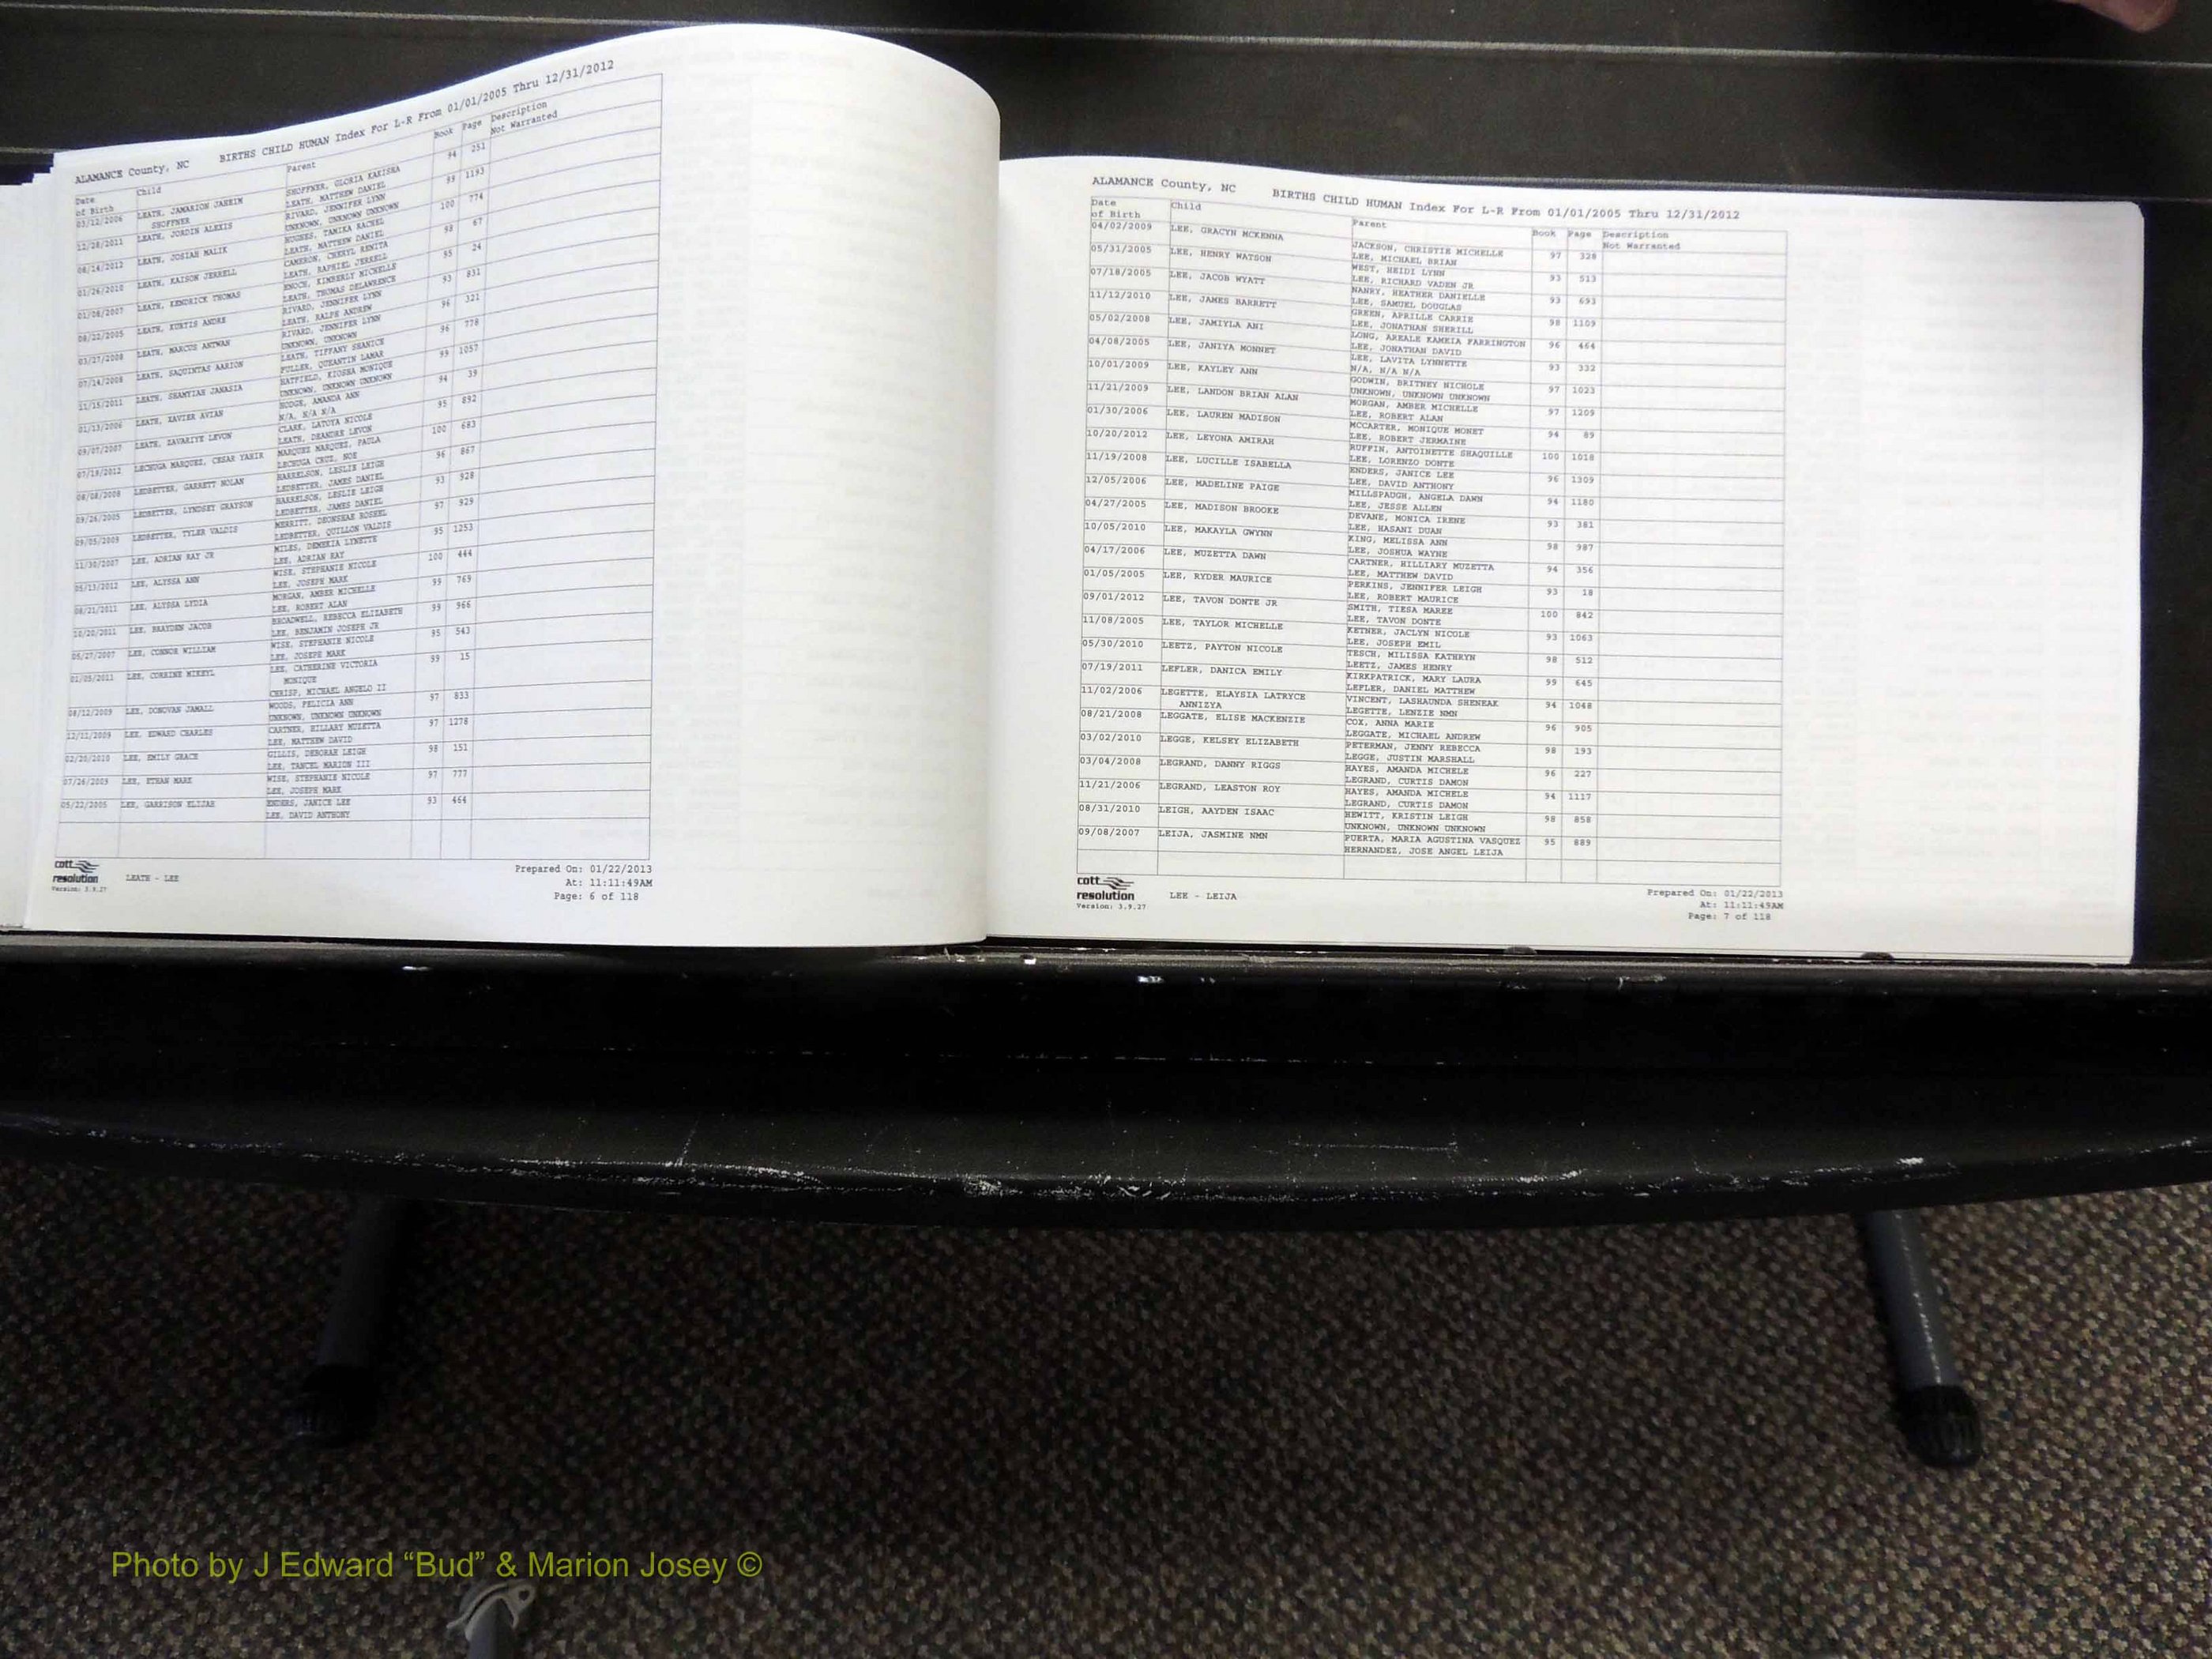 ALAMANCE County, NC BIRTHS CHILD HUMAN Index For L-R From 01/01/2005 Thru 12/31/2012
Date of Birth Child Parent Book Page Description Not Warranted
03/12/2006 LEATH, JAMARION JAHEIM SHOFFNER, GLORIA LAKISHA 94 251
SHOFFNER LEATH, MATTHEW DANIEL
12/28/2011 LEATH, JORDIN ALEXIS RIVARD, JENNIFER LYNN 99 1193
UNKNOWN, UNKNOWN UNKNOWN
08/14/2012 LEATH, JOSIAH MALIK HUGHES, TAMIKA RACHEL 100 774
LEATH, MATTHEW DANIEL
01/26/2010 LEATH, KAISON JERRELL CAMERON, CHERYL RENITA 98 67
LEATH, RAPHIEL JERRELL
01/08/2007 LEATH, KENDRICK THOMAS ENOCH, KIMBERLY MICHELLE 95 24
LEATH, THOMAS DELAWRENCE
08/22/2005 LEATH, KURTIS ANDRE RIVARD, JENNIFER LYNN 93 831
LEATH, RALPH ANDREW
03/27/2008 LEATH, MARCUS ANTWAN RIVARD, JENNIFER LYNN 96 321
UNKNOWN, UNKNOWN
07/14/2008 LEATH, SAQUINTAS AARION LEATH, TIFFANY SHANICE 96 778
FULLER, QUEANTIN LAMAR
11/15/2011 LEATH, SHAMYIAH JANASIA HATFIELD, KIOSHA MONIQUE 99 1057
UNKNOWN, UNKNOWN UNKNOWN
01/13/2006 LEATH, XAVIER AVIAN HODGE, AMANDA ANN 94 39
N/A, N/A N/A
09/07/2007 LEATH, ZAVARIYE LEVON CLARK, LATOYA NICOLE 95 892
LEATH, DEANDRE LEVON
07/19/2012 LECHUGA MARQUEZ, CESAR YAHIR MARQUEZ MARQUEZ, PAULA 100 683
LECHUGA CRUZ, NOE
08/08/2008 LEDBETTER, GARRETT NOLAN HARRELSON, LESLIE LEIGH 96 867
LEDBETTER, JAMES DANIEL
09/26/2005 LEDBETTER, LYNDSEY GRAYSON HARRELSON, LESLIE LEIGH 93 928
LEDBETTER, JAMES DANIEL
09/05/2009 LEDBETTER, TYLER VALDIS MERRITT, DEONSHAE ROSHEL 97 929
LEDBETTER, QUILLON VALDIS
11/30/2007 LEE, ADRIAN RAY JR MILES, DEMERIA LYNETTE 95 1253
LEE, ADRIAN RAY
05/13/2012 LEE, ALYSSA ANN WISE, STEPHANIE NICOLE 100 444
LEE, JOSEPH MARK
08/21/2011 LEE, ALYSSA LYDIA MORGAN, AMBER MICHELLE 99 769
LEE, ROBERT ALAN
10/20/2011 LEE, BRAYDEN JACOB BROADWELL, REBECCA ELIZABETH 99 966
LEE, BENJAMIN JOSEPH JR
05/27/2007 LEE, CONNOR WILLIAM WISE, STEPHANIE NICOLE 95 543
LEE, JOSEPH MARK
01/05/2011 LEE, CORRINE MIKEYL LEE, CATHERINE VICTORIA 99 15
MONIQUE
CHRISP, MICHAEL ANGELO II
08/12/2009 LEE, DONOVAN JAMALL WOODS, FELICIA ANN 97 833
UNKNOWN, UNKNOWN UNKNOWN
12/11/2009 LEE, EDWARD CHARLES CARTNER, HILLARY MUZETTA 97 1278
LEE, MATTHEW DAVID
02/20/2010 LEE, EMILY GRACE GILLIS, DEBORAH LEIGH 98 151
LEE, TANCEL MARION III
07/26/2009 LEE, ETHAN MARK WISE, STEPHANIE NICOLE 97 777
LEE, JOSEPH MARK
05/22/2005 LEE, GARRISON ELIJAH ENDERS, JANICE LEE 93 464
LEE, DAVID ANTHONY
cott resolution
Version: 3.9.27
LEATH - LEE
Prepared On: 01/22/2013
At: 11:11:49AM
Page: 6 of 118
ALAMANCE County, NC BIRTHS CHILD HUMAN Index For L-R From 01/01/2005 Thru 12/31/2012
Date of Birth Child Parent Book Page Description Not Warranted
04/02/2009 LEE, GRACYN MCKENNA JACKSON, CHRISTIE MICHELLE 97 328
LEE, MICHAEL BRIAN
05/31/2005 LEE, HENRY WATSON WEST, HEIDI LYNN 93 513
LEE, RICHARD VADEN JR
07/18/2005 LEE, JACOB WYATT NANRY, HEATHER DANIELLE 93 693
LEE, SAMUEL DOUGLAS
11/12/2010 LEE, JAMES BARRETT GREEN, APRILLE CARRIE 98 1109
LEE, JONATHAN SHERILL
05/02/2008 LEE, JAMIYLA ANI LONG, AREALE KAMEIA FARRINGTON 96 464
LEE, JONATHAN DAVID
04/08/2005 LEE, JANIYA MONNET LEE, LAVITA LYNNETTE 93 332
N/A, N/A N/A
10/01/2009 LEE, KAYLEY ANN GODWIN, BRITNEY NICHOLE 97 1023
UNKNOWN, UNKNOWN UNKNOWN
11/21/2009 LEE, LANDON BRIAN ALAN MORGAN, AMBER MICHELLE 97 1209
LEE, ROBERT ALAN
01/30/2006 LEE, LAUREN MADISON MCCARTER, MONIQUE MONET 94 89
LEE, ROBERT JERMAINE
10/20/2012 LEE, LEYONA AMIRAH RUFFIN, ANTOINETTE SHAQUILLE 100 1018
LEE, LORENZO DONTE
11/19/2008 LEE, LUCILLE ISABELLA ENDERS, JANICE LEE 96 1309
LEE, DAVID ANTHONY
12/05/2006 LEE, MADELINE PAIGE MILLSPAUGH, ANGELA DAWN 94 1180
LEE, JESSE ALLEN
04/27/2005 LEE, MADISON BROOKE DEVANE, MONICA IRENE 93 381
LEE, HASANI DUAN
10/05/2010 LEE, MAKAYLA GWYNN KING, MELISSA ANN 98 987
LEE, JOSHUA WAYNE
04/17/2006 LEE, MUZETTA DAWN CARTNER, HILLIARY MUZETTA 94 356
LEE, MATTHEW DAVID
01/05/2005 LEE, RYDER MAURICE PERKINS, JENNIFER LEIGH 93 18
LEE, ROBERT MAURICE
09/01/2012 LEE, TAVON DONTE JR SMITH, TIESA MAREE 100 842
LEE, TAVON DONTE
11/08/2005 LEE, TAYLOR MICHELLE KETNER, JACLYN NICOLE 93 1063
LEE, JOSEPH EMIL
05/30/2010 LEETZ, PAYTON NICOLE TESCH, MILISSA KATHRYN 98 512
LEETZ, JAMES HENRY
07/19/2011 LEFLER, DANICA EMILY KIRKPATRICK, MARY LAURA 99 645
LEFLER, DANIEL MATTHEW
11/02/2006 LEGETTE, ELAYSIA LATRYCE VINCENT, LASHAUNDA SHENEAK 94 1048
ANNIZYA LEGETTE, LENZIE NMN
08/21/2008 LEGGATE, ELISE MACKENZIE COX, ANNA MARIE 96 905
LEGGATE, MICHAEL ANDREW
03/02/2010 LEGGE, KELSEY ELIZABETH PETERMAN, JENNY REBECCA 98 193
LEGGE, JUSTIN MARSHALL
03/04/2008 LEGRAND, DANNY RIGGS HAYES, AMANDA MICHELE 96 227
LEGRAND, CURTIS DAMON
11/21/2006 LEGRAND, LEASTON ROY HAYES, AMANDA MICHELE 94 1117
LEGRAND, CURTIS DAMON
08/31/2010 LEIGH, AAYDEN ISAAC HEWITT, KRISTIN LEIGH 98 858
UNKNOWN, UNKNOWN UNKNOWN
09/08/2007 LEIJA, JASMINE NMN PUERTA, MARIA AGUSTINA VASQUEZ 95 889
HERNANDEZ, JOSE ANGEL LEIJA
cott resolution
Version: 3.9.27
LEE - LEIJA
Prepared On: 01/22/2013
At: 11:11:49AM
Page: 7 of 118
Photo by J Edward “Bud” & Marion Josey ©